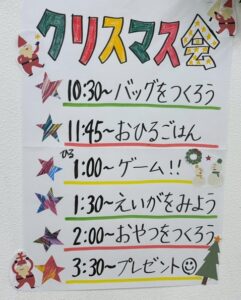 クリスマス会
10:30～バッグをつくろう
11:45～おひるごはん
ひる
1:00～ゲーム!!
1:30～えいがをみよう
2:00～おやつをつくろう
3:30～プレゼント☺